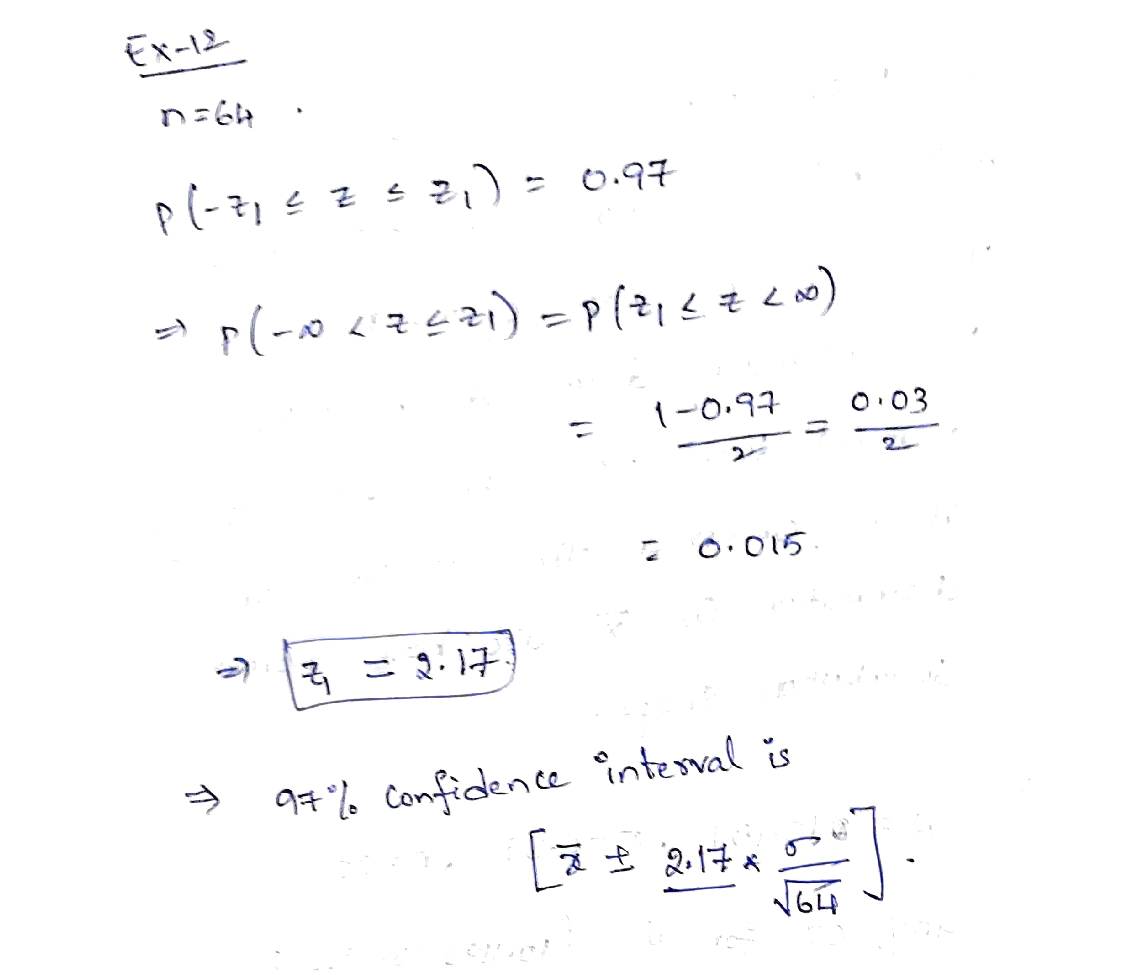 Ex-12
n=64 .
P(-z₁ ≤ z ≤ z₁) = 0.97
⇒ P(-∞ < z ≤ z1) = P(z₁ ≤ z < ∞)
= 1-0.97/2 = 0.03/2
= 0.015
⇒ z₁ = 2.17
⇒ 97% Confidence interval is
[x̄ ± 2.17 * σ/√64].